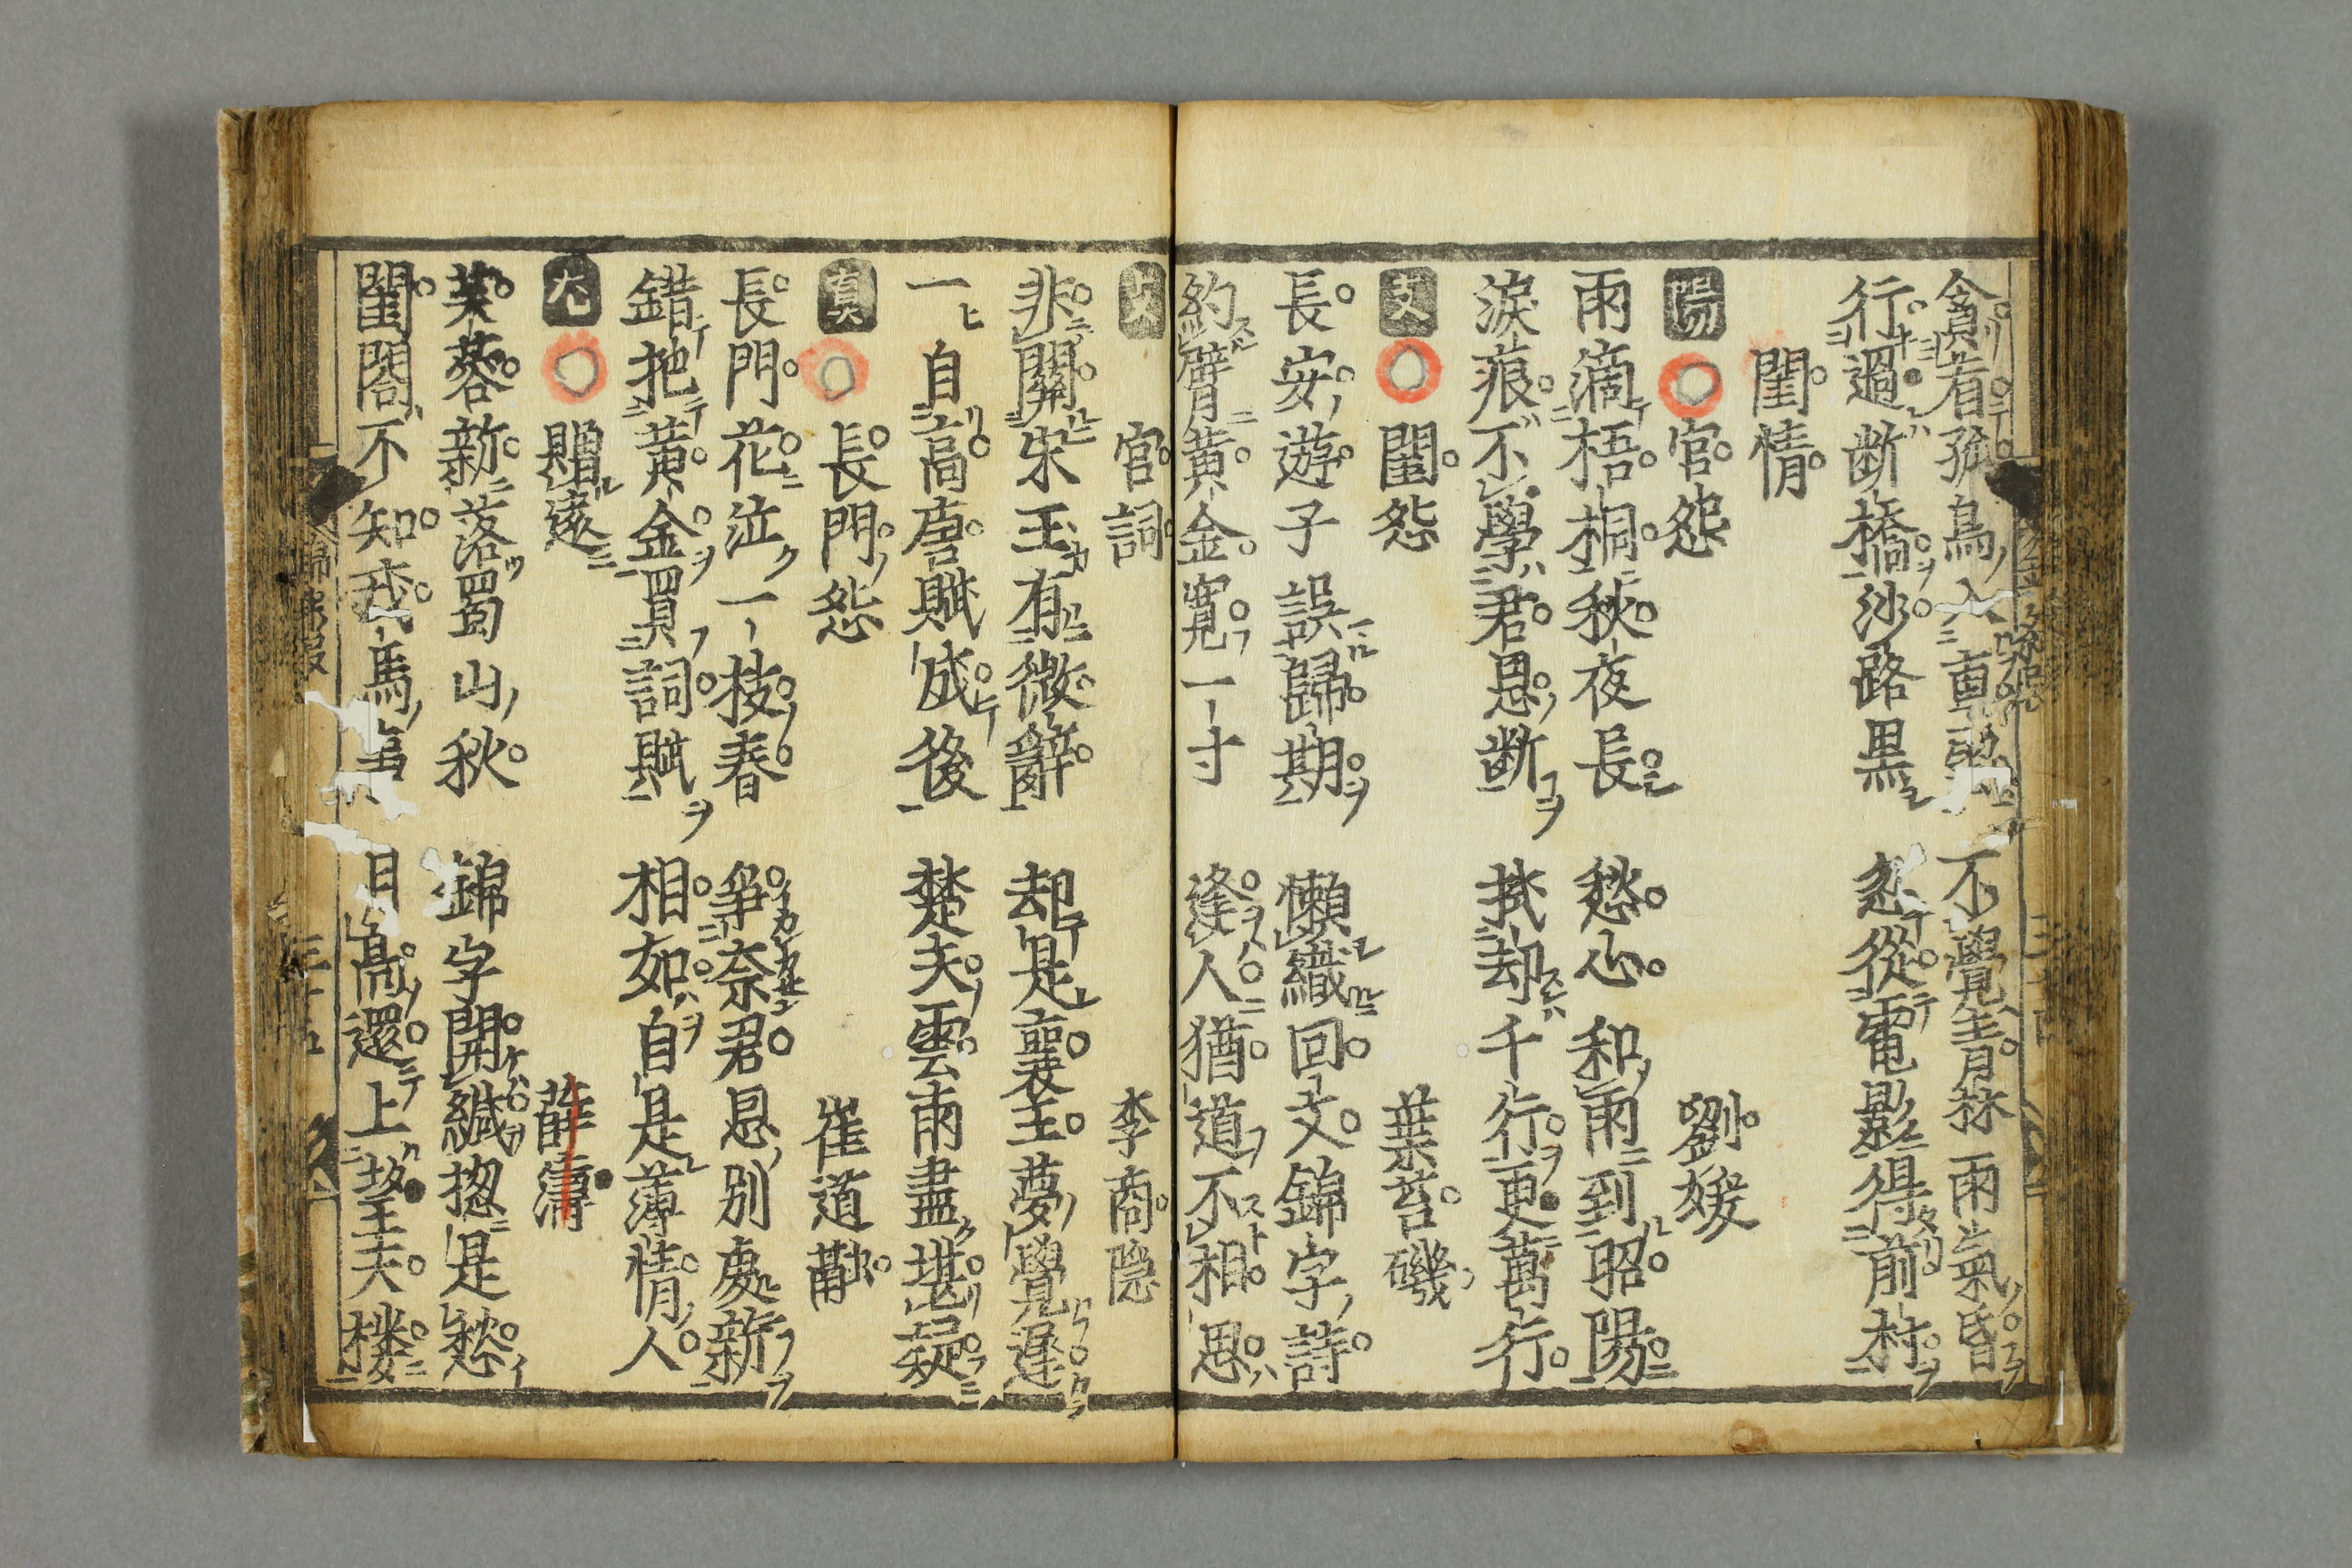 貪看孤鳥入重雲 不覺青林雨氣昏
行過断橋沙路黒 忽從電影得前村
閨情
陽 宮怨 劉媛
雨滴梧桐秋夜長 愁心和雨到昭陽
淚痕不學君恩断 拭却千行更萬行
支 閨怨 葉苔磯
長安遊子誤歸期 懶織回文錦字詩
約臂黄金寛一寸 逢人猶道不相思
支 宮詞 李商隐
非關宋玉有微辭 却是襄王夢覺遲
一自高唐賦成後 楚天雲雨盡堪疑
真 長門怨 崔道融
長門花泣一枝春 爭奈君恩别處新
錯把黄金買詞賦 相如自是薄情人
尤 贈遠 薛濤
芙蓉新落蜀山秋 錦字開緘揔是愁
閨閤不知戎馬事 月高還上望夫楼